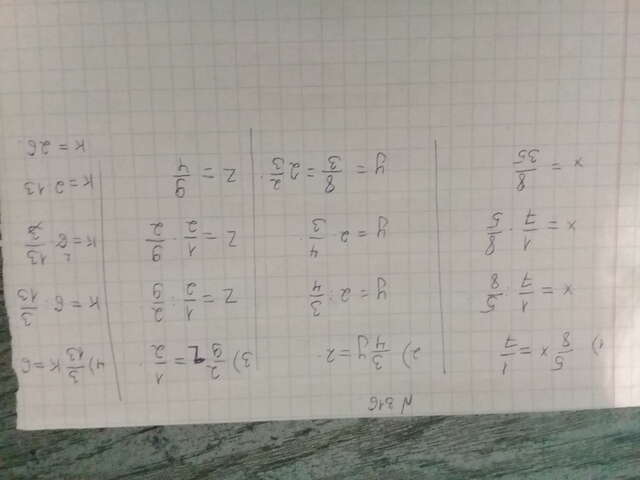 N 316
1) 5/8 x = 1/7
x = 1/7 : 5/8
x = 1/7 · 8/5
x = 8/35
2) 3/4 y = 2.
y = 2 : 3/4
y = 2 · 4/3
y = 8/3 = 2 2/3.
3) 2/9 z = 1/2.
z = 1/2 : 2/9
z = 1/2 · 9/2
z = 9/4
4) 3/13 k = 6
k = 6 : 3/13
k = 6 · 13/3
k = 2 · 13
k = 26.